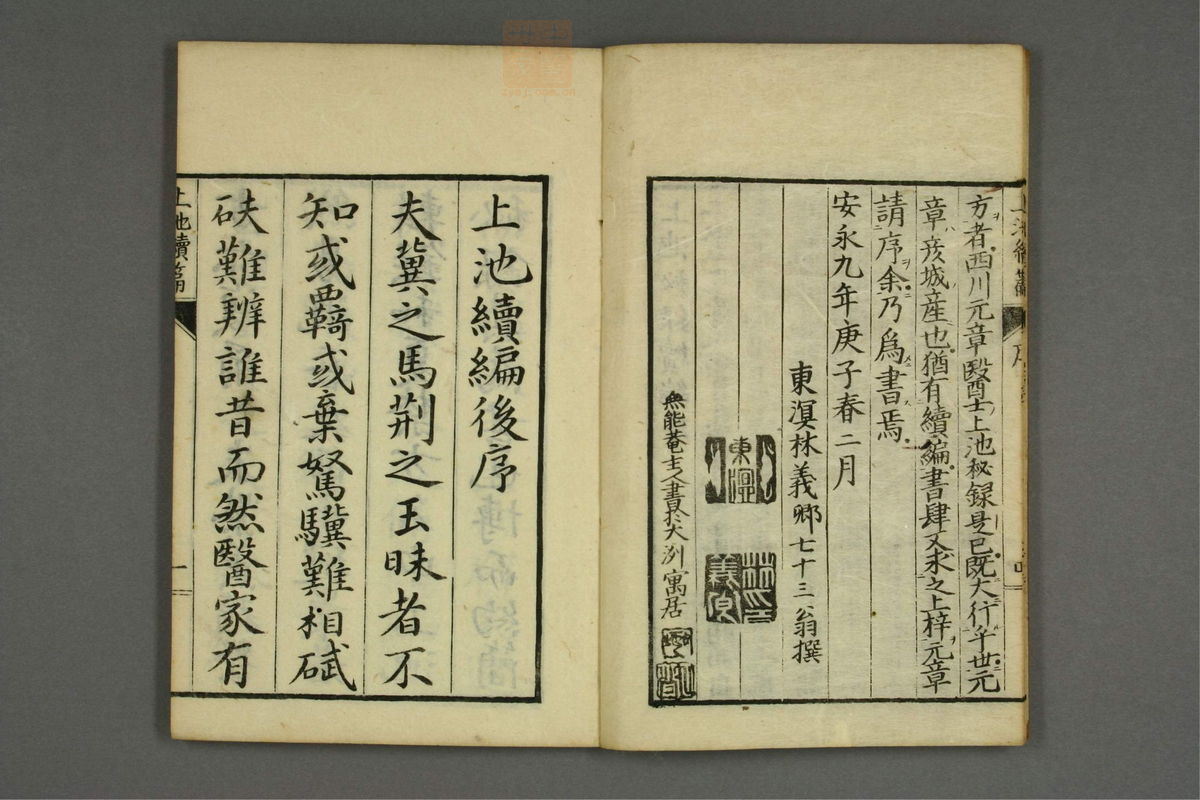 方者西川元章醫士上池秘録是已既大行乎世元
章亥城産也猶有續編書肆又求之上梓元章
請序余乃爲書焉
安永九年庚子春二月
東溟林義卿七十三翁撰
無能菴主人書於大洌寓居
上池續編後序
夫冀之馬荆之玉昧者不
知或羈或棄駑驥難相碔
砆難辨誰昔而然醫家有
上池續篇
一